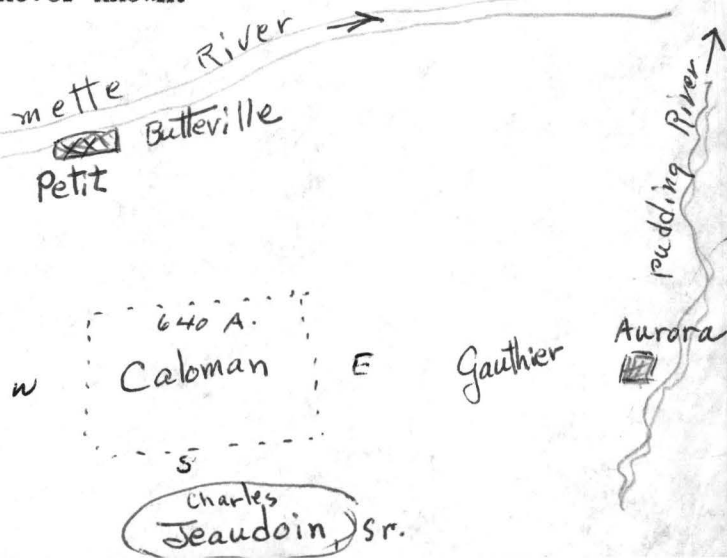 never known.
River
mette
Butteville
Petit
Pudding River
640 A.
Caloman
W
E
Gauthier
Aurora
S
Charles
Jeaudoin, Sr.